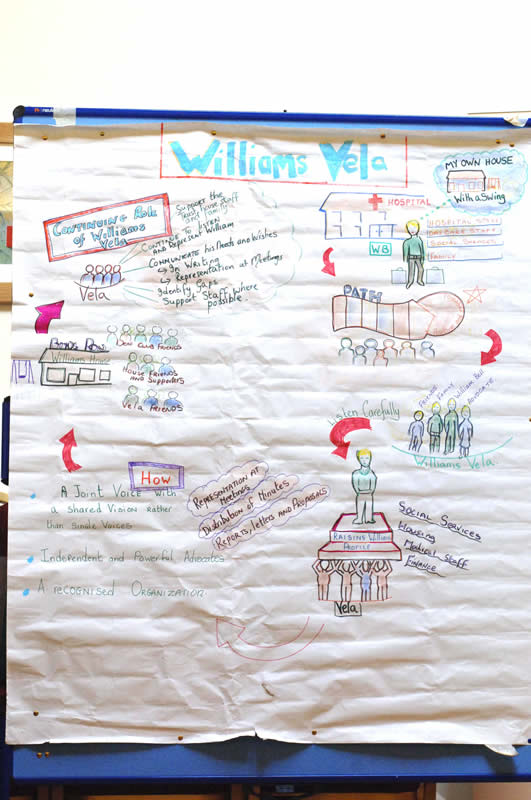 Williams Vela
MY OWN HOUSE
With a Swing
HOSPITAL
WB
HOSPITAL STAFF
DAY CARE STAFF
SOCIAL SERVICES
FAMILY
PATH
FRIENDS
Family
William Bell
ADVOCATE
Williams Vela
Listen Carefully
RAISING Williams
PROFILE
Vela
SOCIAL SERVICES
HOUSING
Medical Staff
FINANCE
REPRESENTATION AT
MEETINGS
Distribution of Minutes
REPORTS, letters AND PROPOSALS
How
A JOINT VOICE with
a shared Vision RATHER
than Single VOICES
INDEPENDENT and Powerful Advocates
A RECOGNISED ORGANIZATION
Williams House
CLUB FRIENDS
HOUSE FRIENDS
AND SUPPORTERS
Vela FRIENDS
CONTINUING Role
of Williams
Vela
Vela
Support the
house staff
and Family
CONTINUE TO LISTEN
AND REPRESENT William
COMMUNICATE his Needs and Wishes
IN WRITING
Representation at Meetings
Identify Gaps
Support Staff where
possible